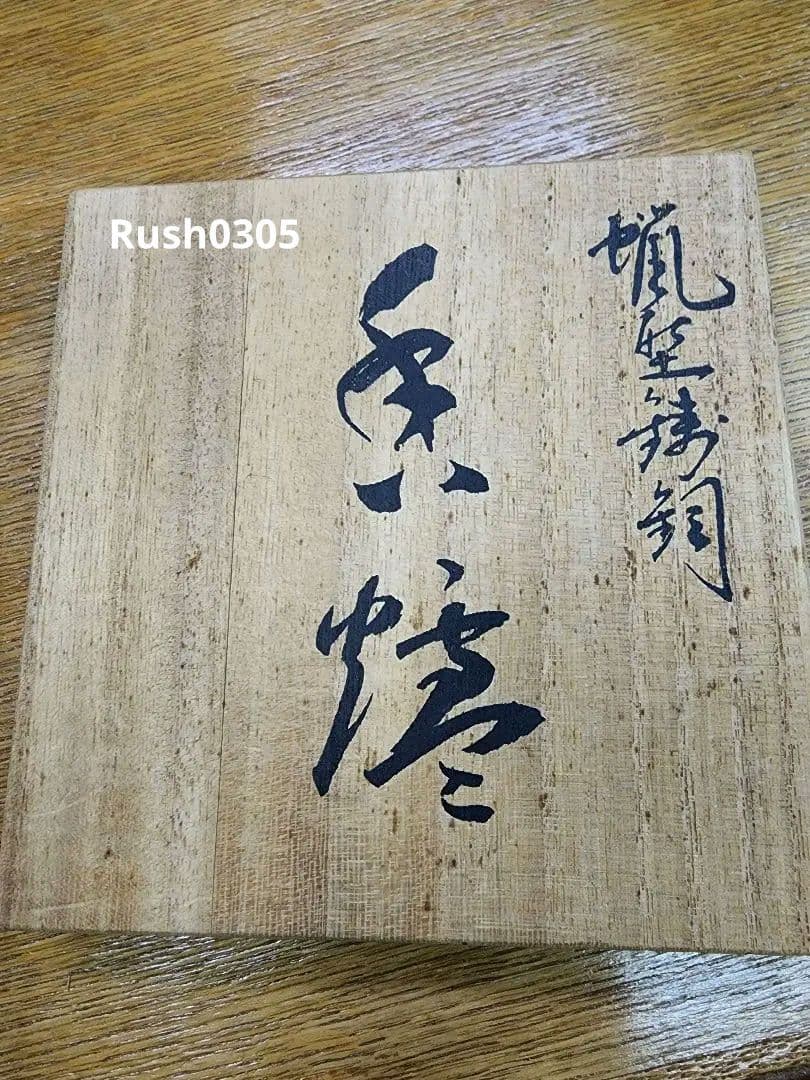 Rush0305
蝋型鋳銅
香炉